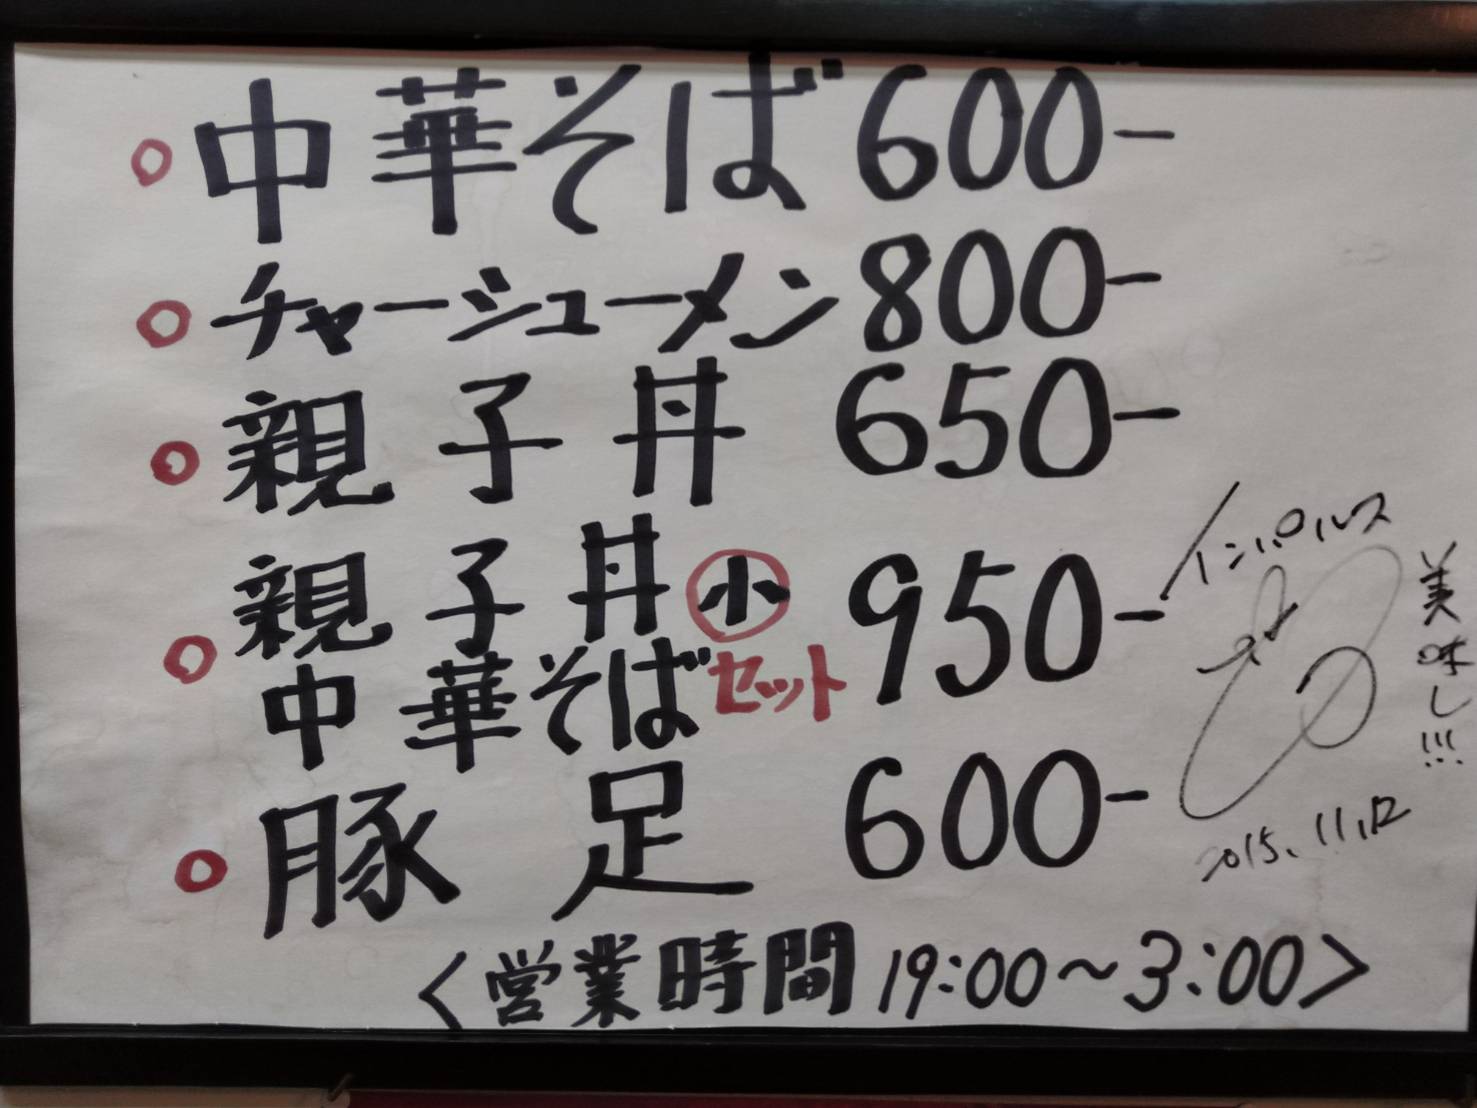 ○中華そば600-
○チャーシューメン800-
○親子丼650-
○親子丼小
中華そばセット950-
○豚足600-
<営業時間19:00〜3:00>
インパルス
美味し!!!
2015.11.12